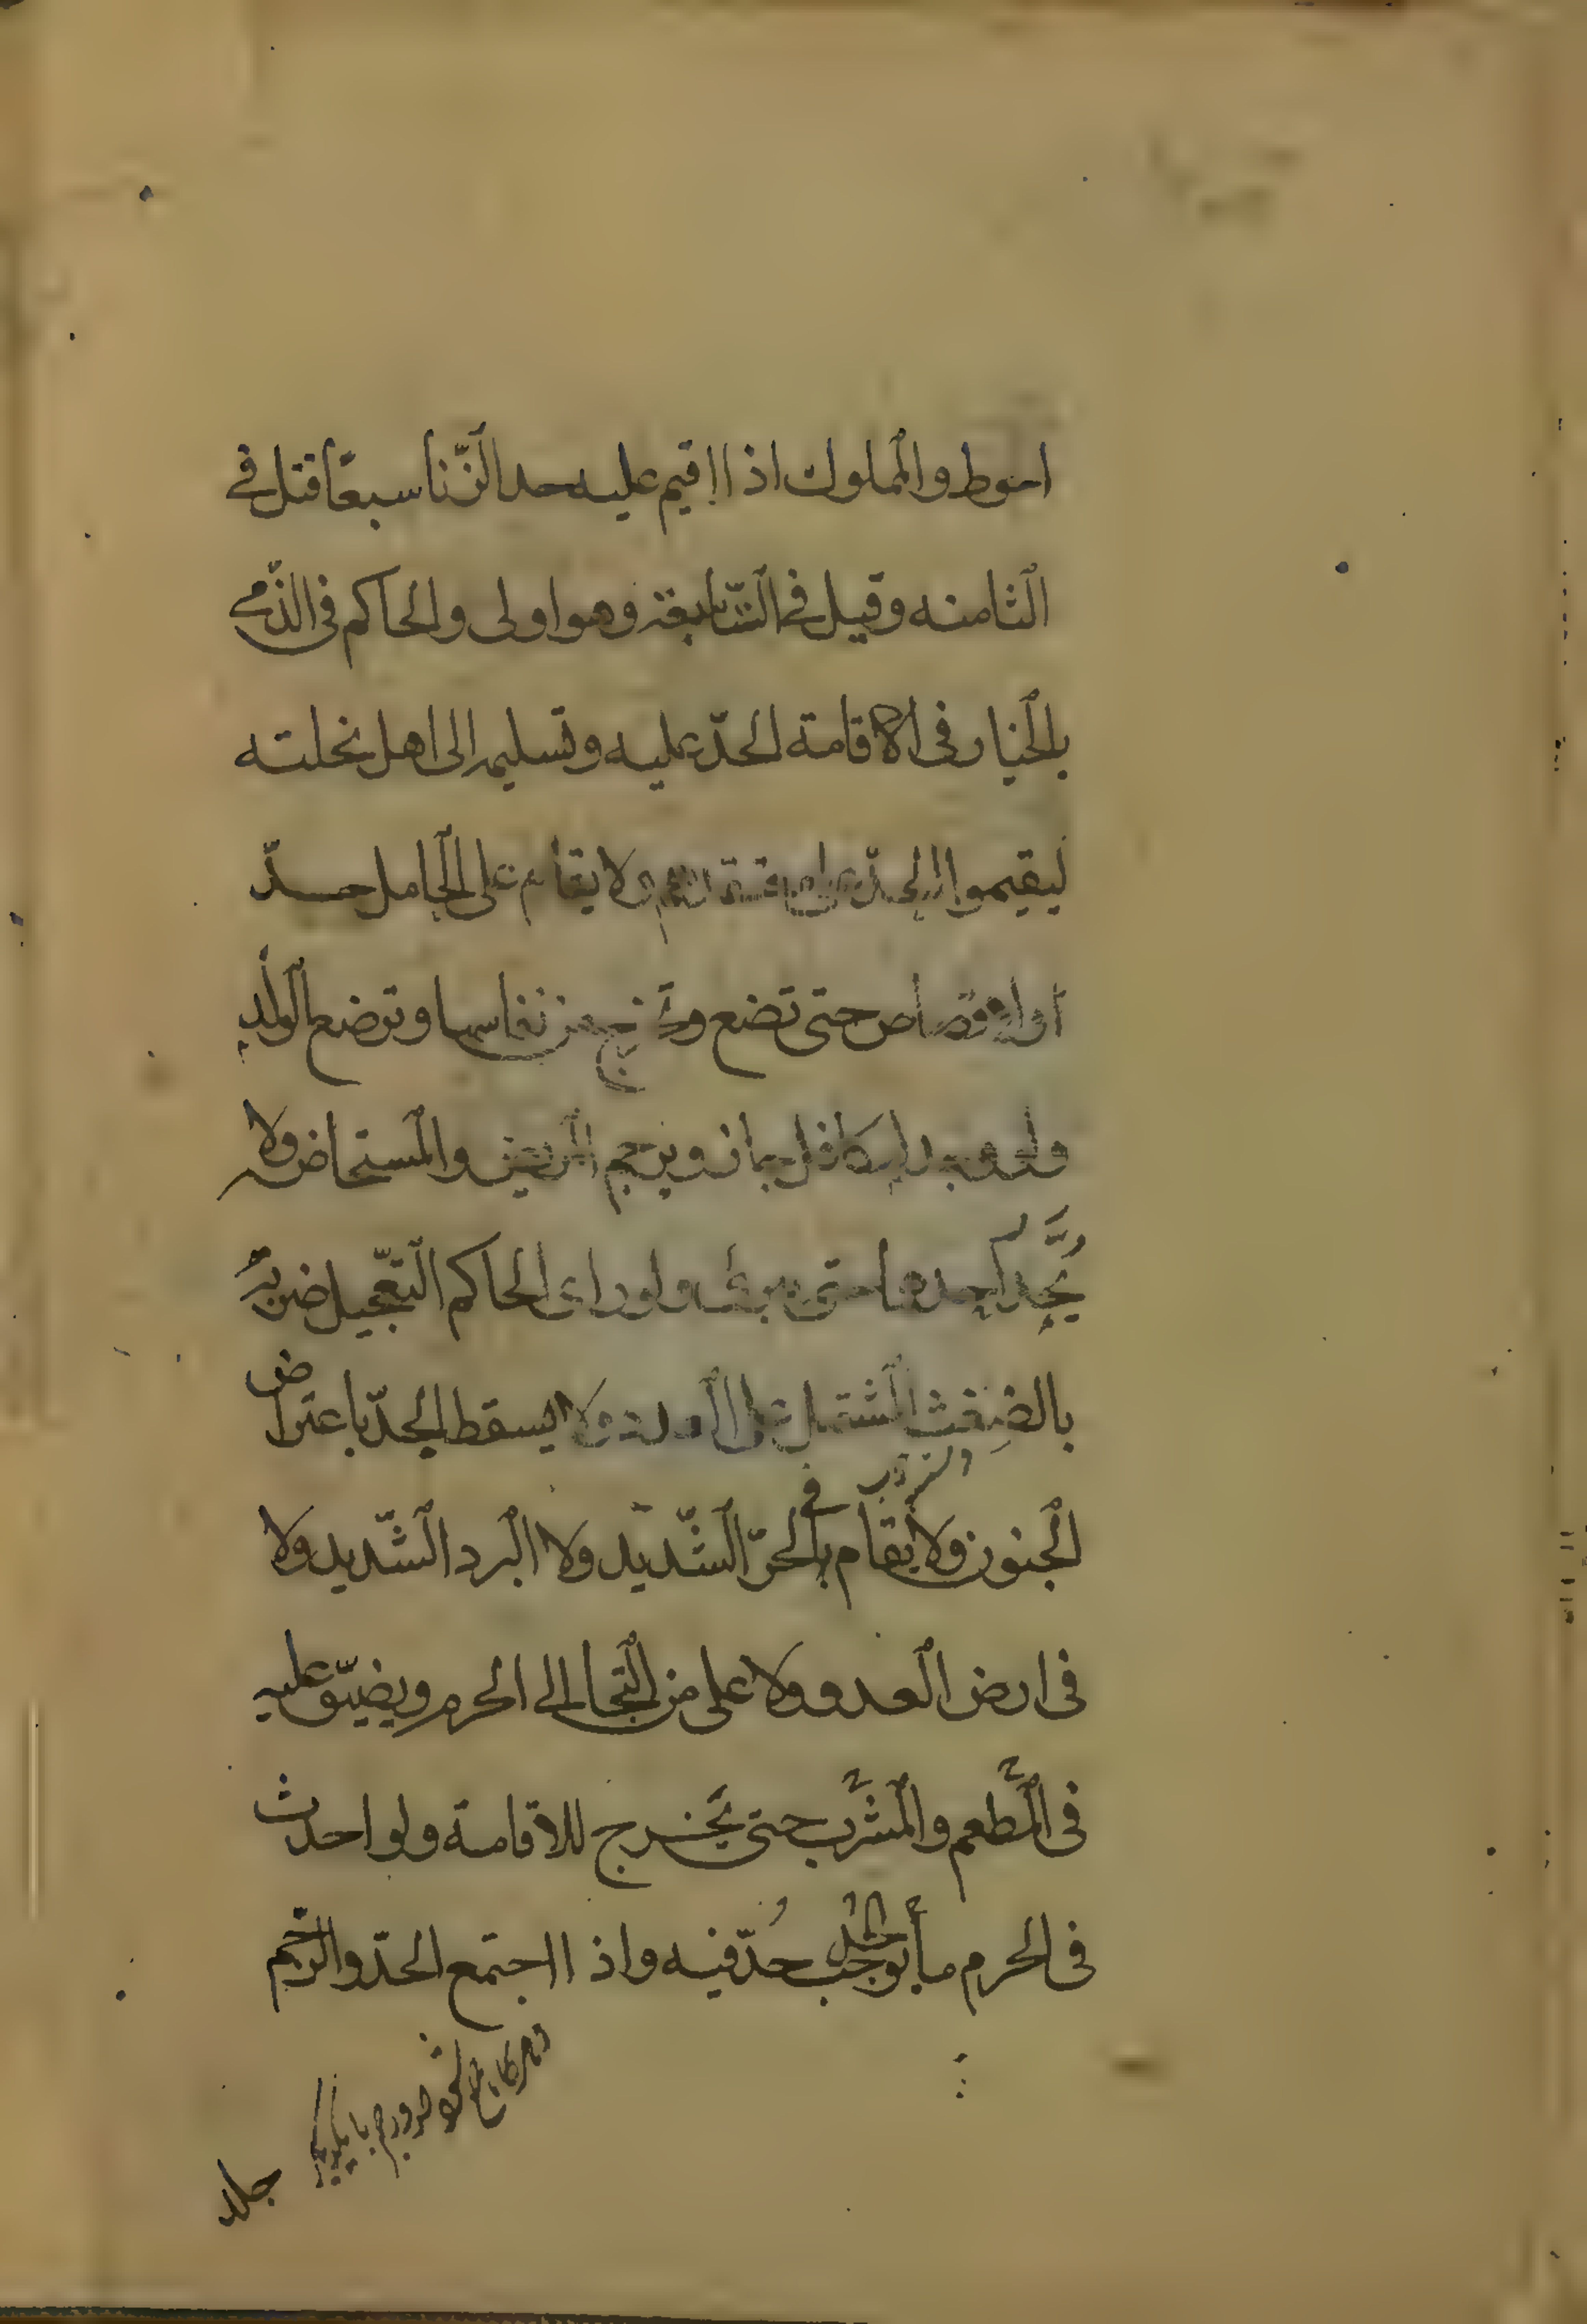 احوط والمملوك اذا اقيم عليه حد الزّنا سبعًا قتل فى
الثامنه وقيل فى التّاسعة وهو اولى والحاكم فى الذّمى
بالخيار فى الاقامة الحدّ عليه وتسليمه الى اهل نحلته
ليقيموا الحدّ على معتقدهم ولا يقام على الحامل حدّ
ولا قصاص حتى تضع وتخرج من نفاسها وترضع الولد
ولو وجد له كافل جاز ويرجم المريض والمستحاضه ولا
يُجلد احدهما حتى يبرء ولو راى الحاكم التّعجيل ضربه
بالضِغث المشتمل على العدد ولا يسقط الحدّ باعتراض
الجنون ولا يقام فى الحرّ الشّديد ولا البرد الشّديد ولا
فى ارض العدو ولا على من التجا الى الحرم ويضيّق عليه
فى المَطعم والمَشرَب حتى يَخرج للاقامة ولو احدث
فى الحرم ما يوجب الحدّ حُدّ فيه واذا اجتمع الحدّ والرّجم
جلد